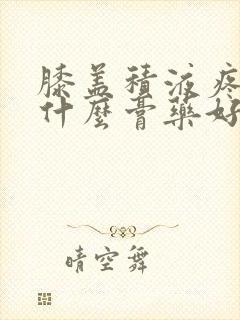 膝盖積液疼
什麼膏藥好
晴空舞